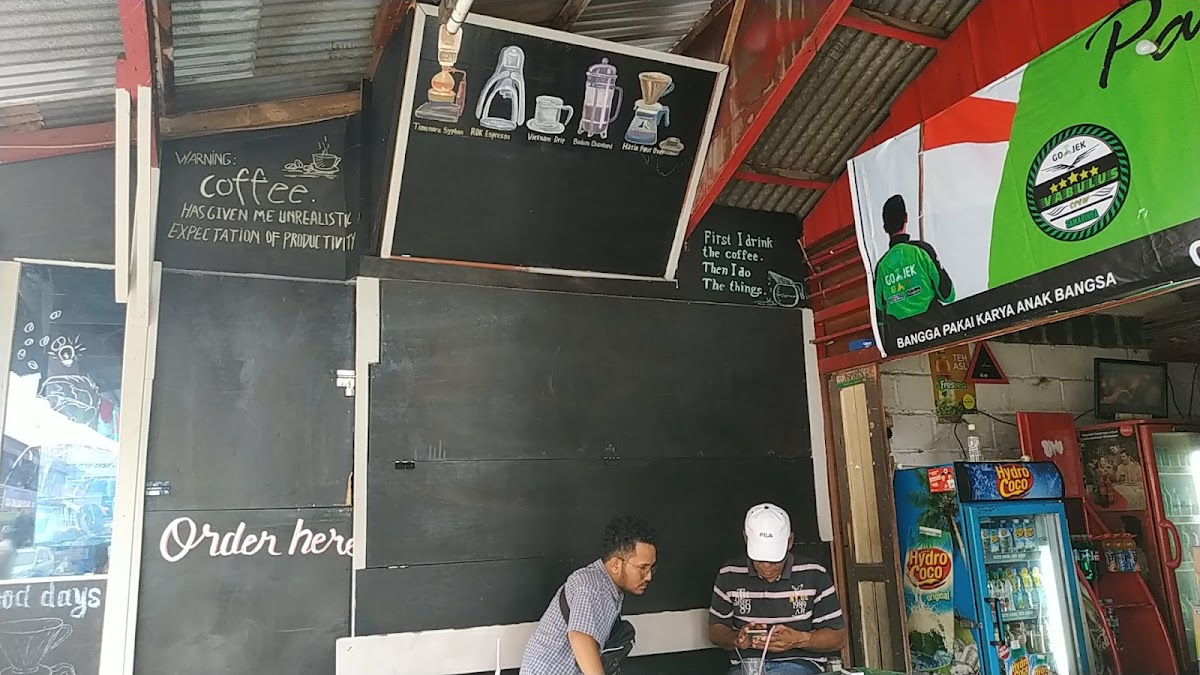 WARNING:
coffee.
HAS GIVEN ME UNREALISTIC
EXPECTATION OF PRODUCTIVITY
Timemore Syphon
ROK Espresso
Vietnam Drip
Bodum Chambord
Hario Pour Over
First I drink
the coffee.
Then I do
The things.
Order here
od days
Pa
GO JEK
CREW
SAMARINDA
GO JEK
BANGGA PAKAI KARYA ANAK BANGSA
TEH
ASLI
frestea
Hydro
Coco
Hydro
Coco
original
Hydro
Coco
FILA
89
1989